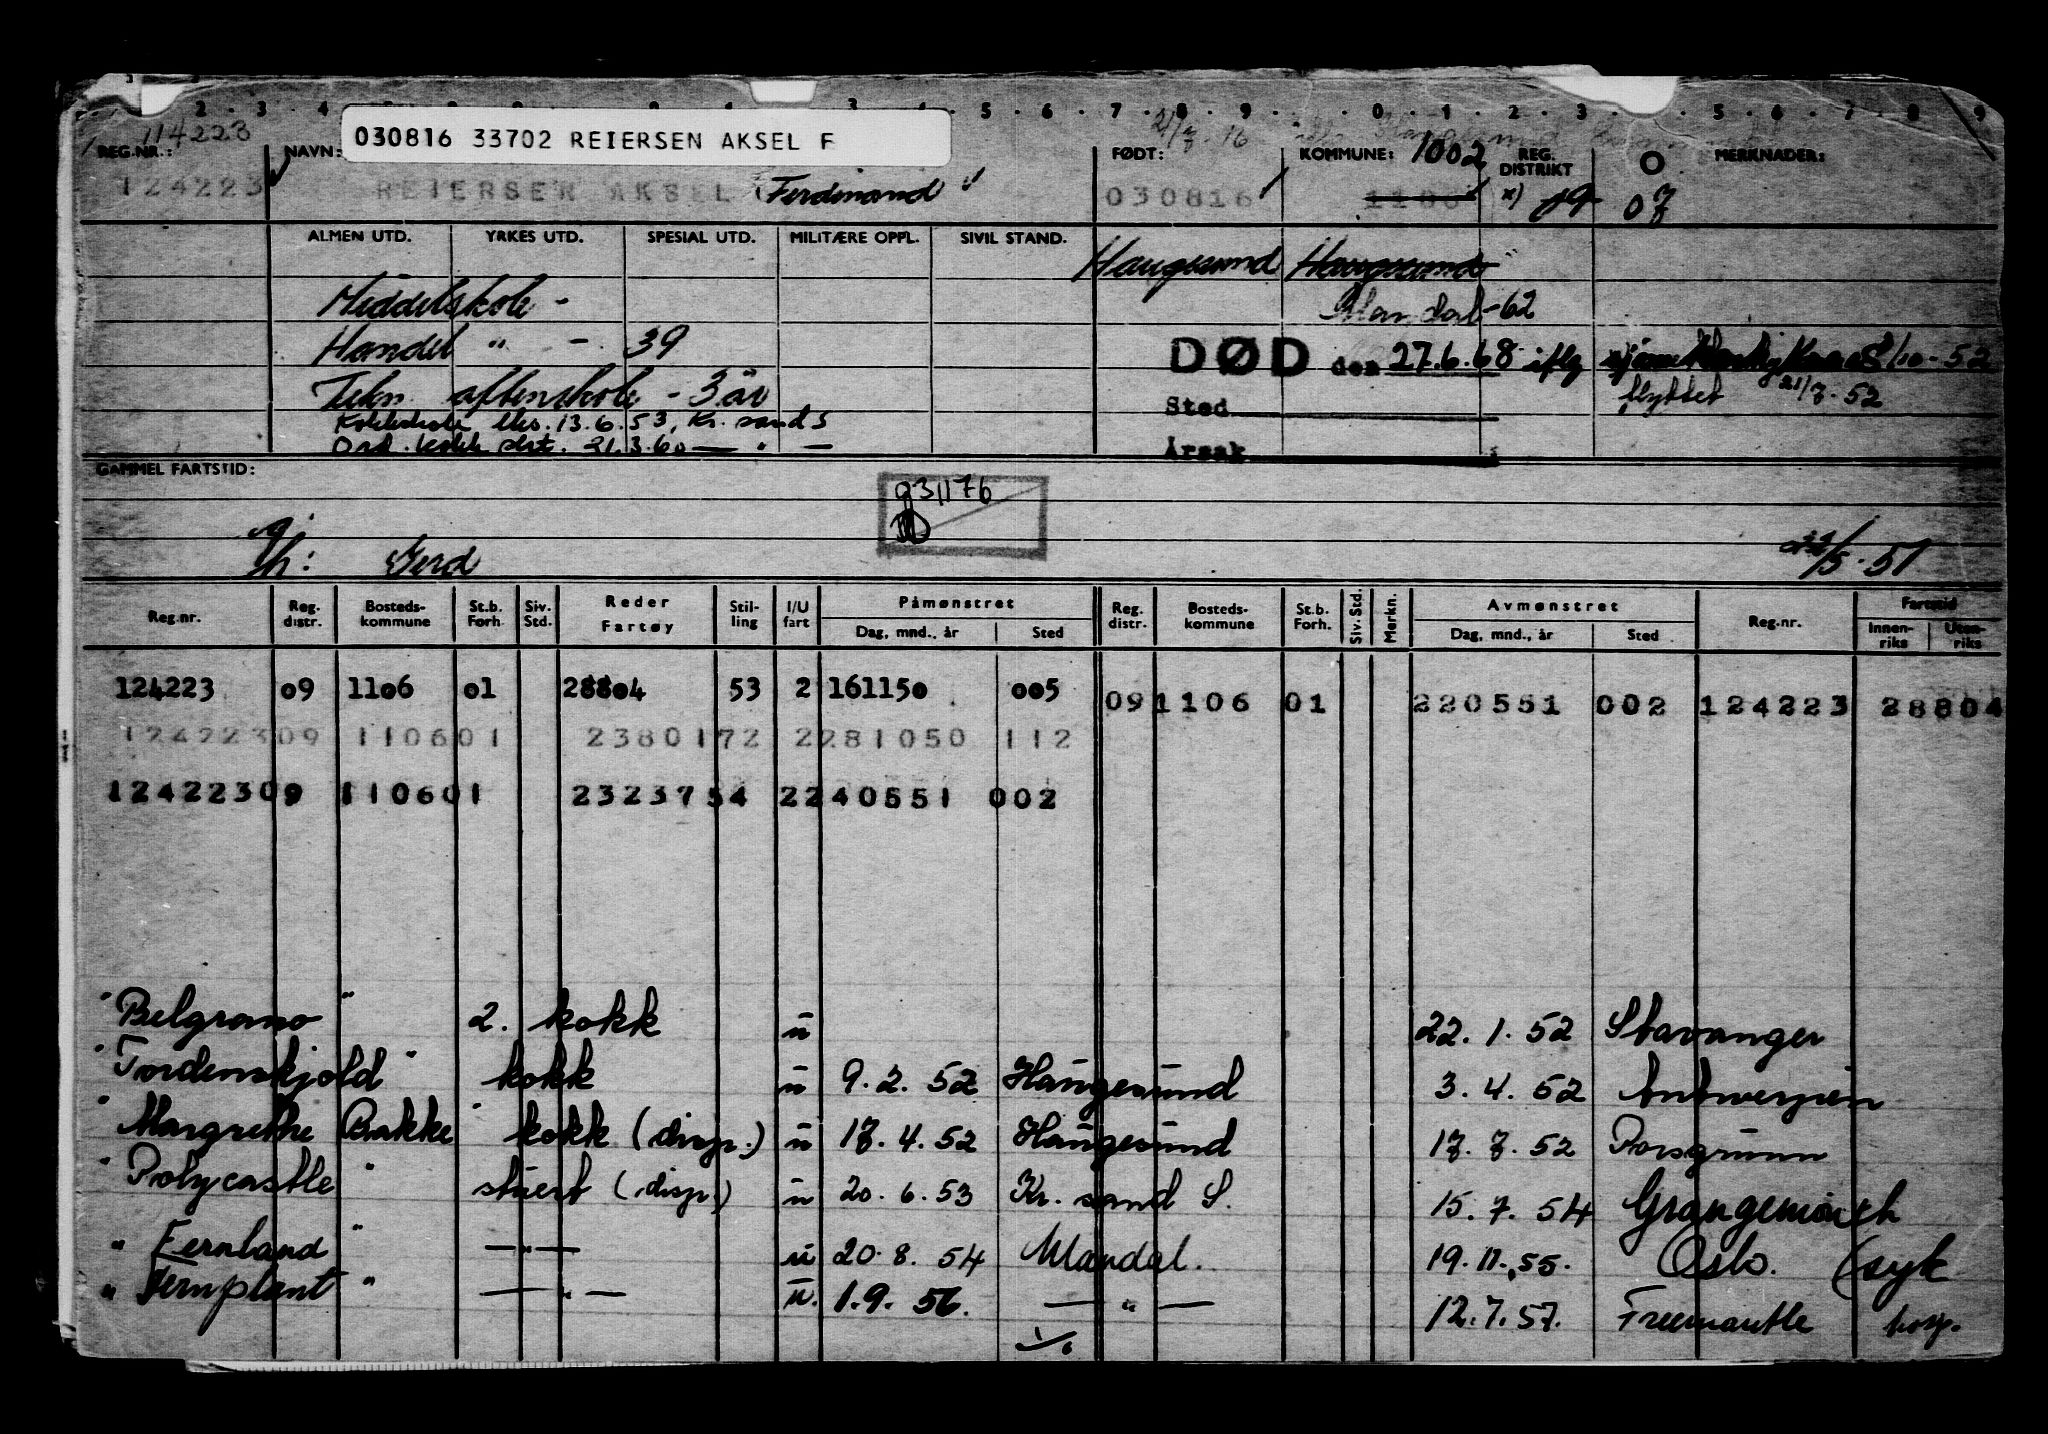 114223
030816 33702 REIERSEN AKSEL F
REG.NR.: NAVN: FØDT: KOMMUNE: 1002 REG. DISTRIKT O MERKNADER:
124223 REIERSEN AKSEL Ferdinand 030816 1106 x) 09 07
ALMEN UTD. YRKES UTD. SPESIAL UTD. MILITÆRE OPPL. SIVIL STAND. Haugesund Haugesund
Middelskole - Mandal -62
Handel " - 39 DØD den 27.6.68 iflg
Tekn. aftenskole - 3 år Sted flyttet 21/7.52
Kokkskole eks. 13.6.53, Kr. sand S
Ord. kokk sert. 21.3.60 — " — Årsak
GAMMEL FARTSTID:
g31176
Gj.
Th: Gerd 22/5.51
Reg.nr. Reg. distr. Bosteds- kommune St.b. Forh. Siv. Std. Reder Fartøy Stil- ling I/U fart Påmønstret Dag, mnd., år Sted Reg. distr. Bosteds- kommune St.b. Forh. Siv.Std. Merkn. Avmønstret Dag, mnd., år Sted Reg.nr. Fartstid Innen- riks Uten- riks
124223 09 1106 01 28804 53 2 161150 005 09 1106 01 220551 002 124223 28804
124223 09 1106 01 23801 72 2 281050 112
124223 09 1106 01 23237 54 2 240551 002
"Belgrano" 2. kokk u 22.1.52 Stavanger
"Tordenskjold" kokk u 9.2.52 Haugesund 3.4.52 Antwerpen
"Margrethe Bakke" kokk (disp.) u 17.4.52 Haugesund 17.7.52 Porsgrunn
"Polycastle" stuert (disp.) u 20.6.53 Kr. sand S. 15.7.54 Grangemouth
"Fernland" — " — u 20.8.54 Mandal. 19.11.55. Oslo. (syk
"Fernplant" — " — u. 1.9.56. — " — 12.7.57. Freemantle hosp.